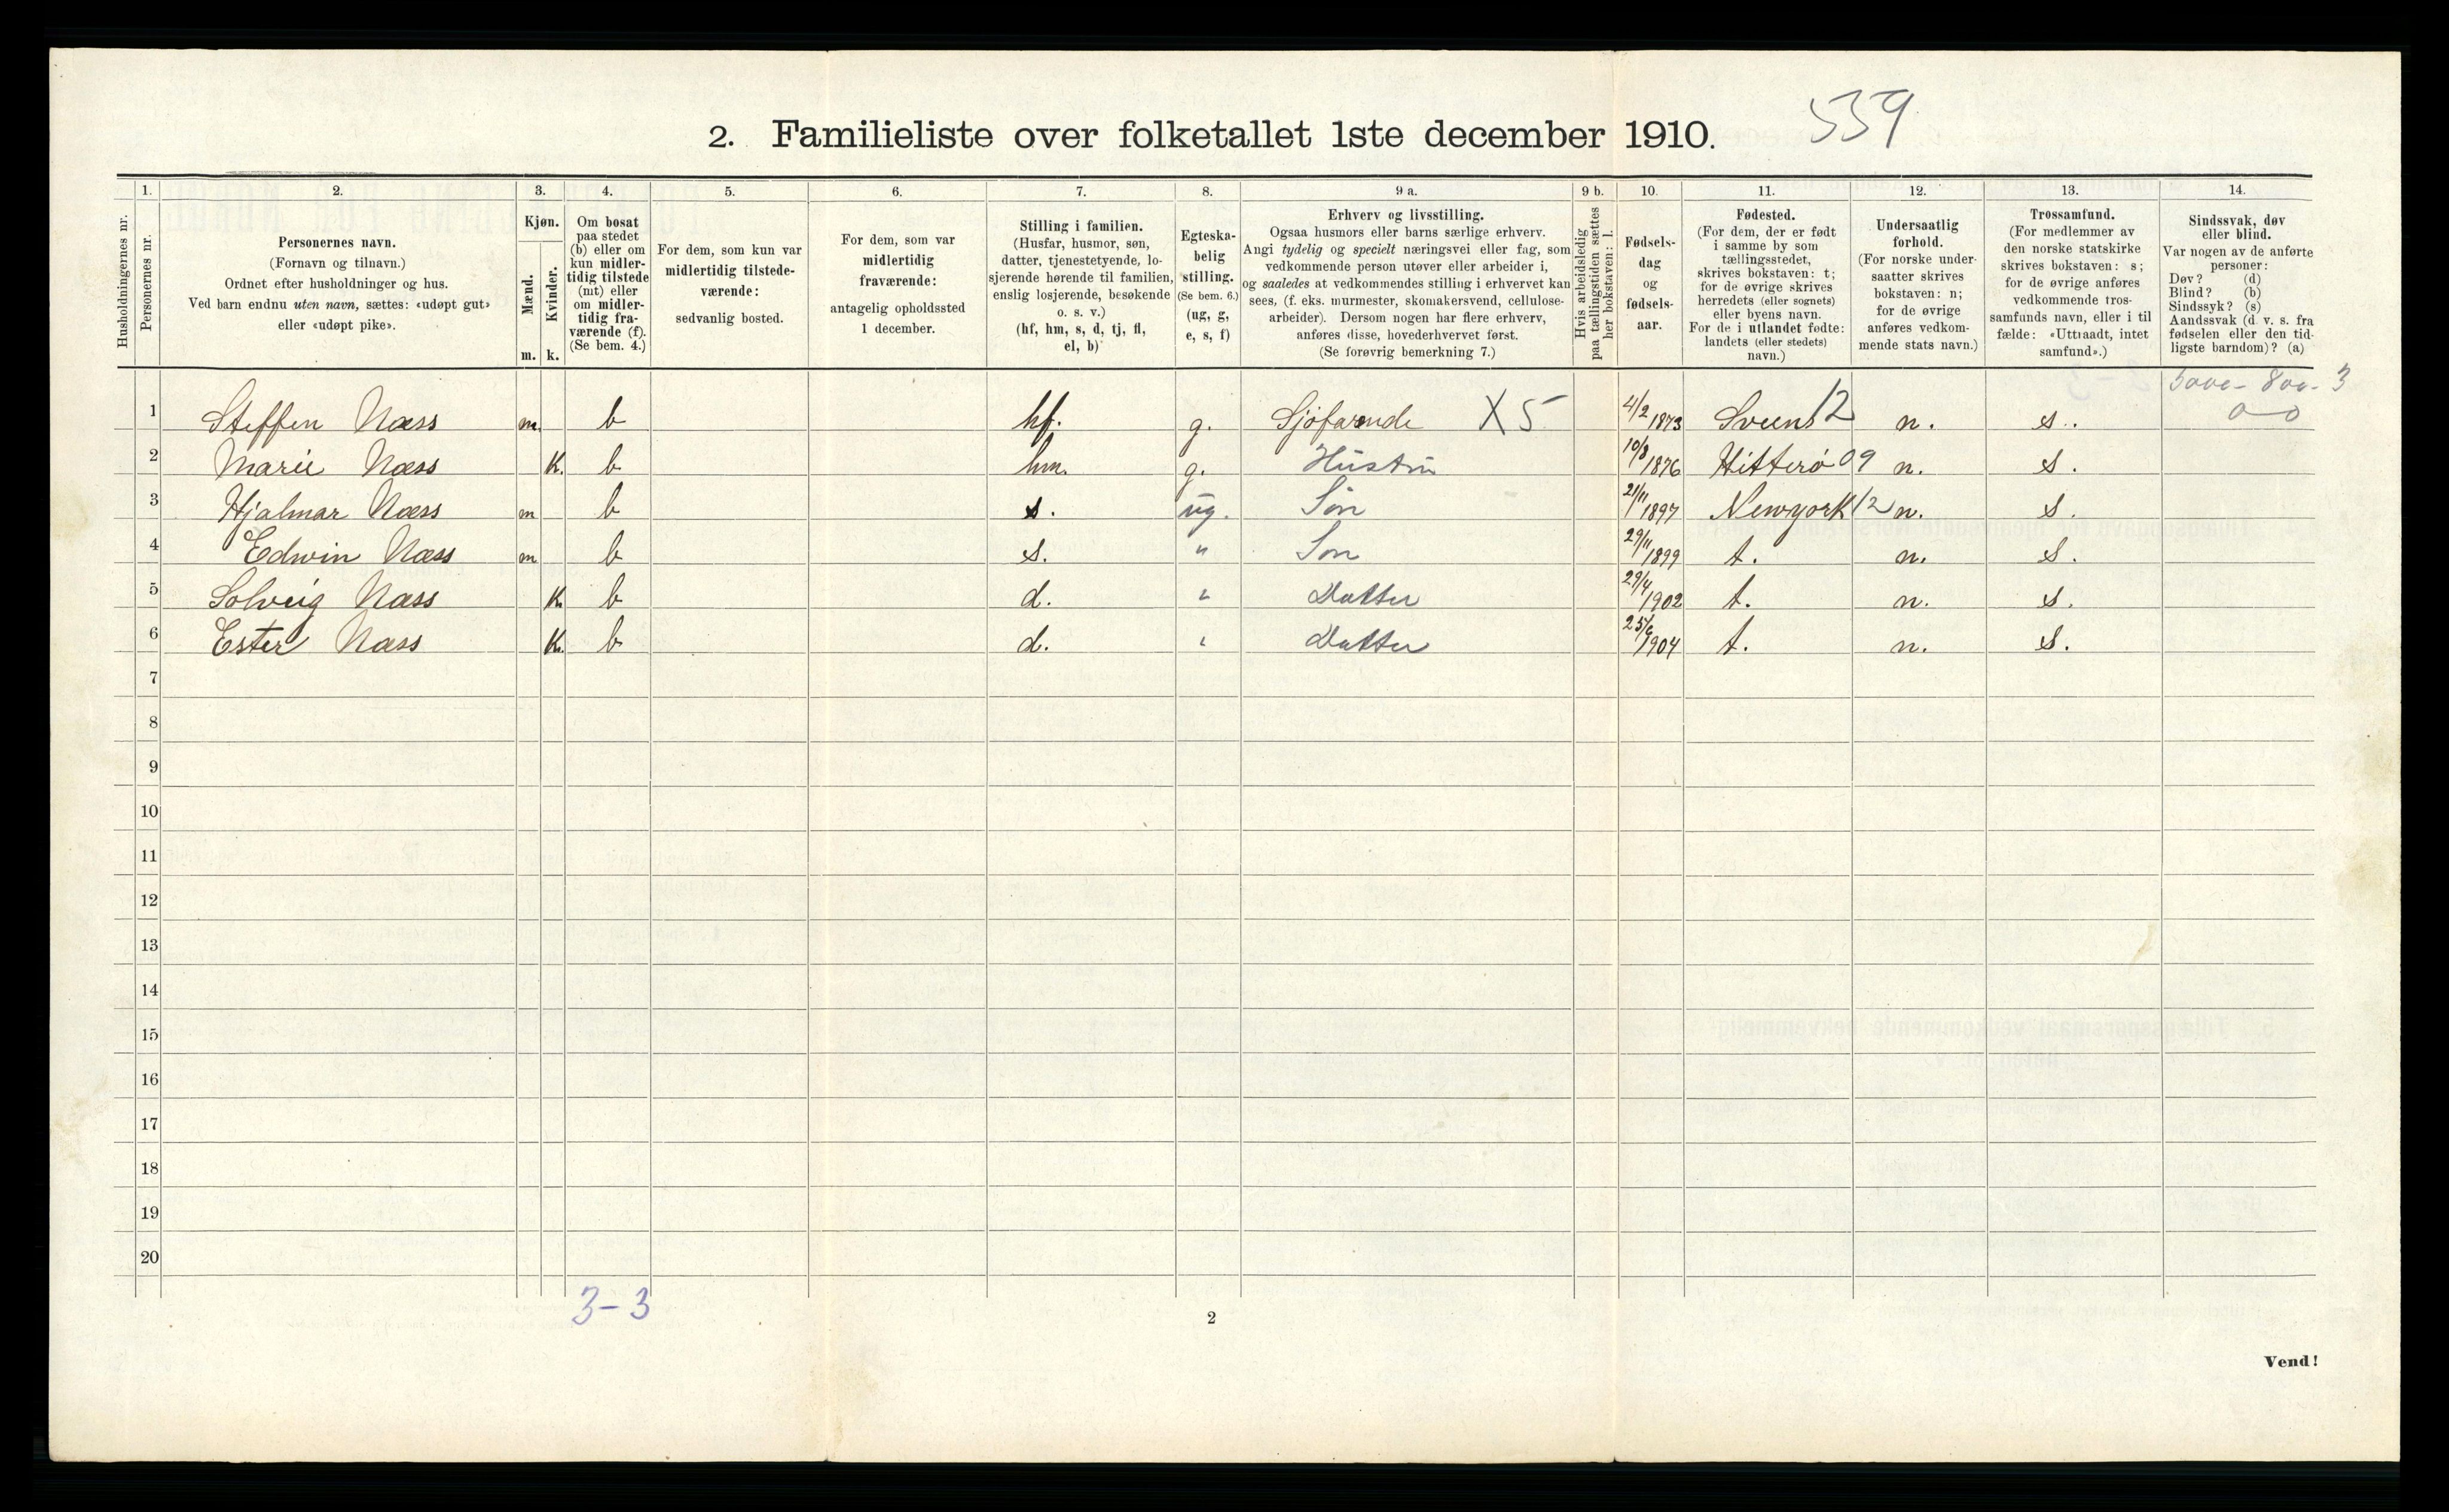 539
2. Familieliste over folketallet 1ste december 1910.
1. 2. 3. 4. 5. 6. 7. 8. 9 a. 9 b. 10. 11. 12. 13. 14.
Husholdningernes nr.
Personernes nr.
Personernes navn.
(Fornavn og tilnavn.)
Ordnet efter husholdninger og hus.
Ved barn endnu uten navn, sættes: «udøpt gut»
eller «udøpt pike».
Kjøn.
Mænd.
Kvinder.
m. k.
Om bosat
paa stedet
(b) eller om
kun midler-
tidig tilstede
(mt) eller
om midler-
tidig fra-
værende (f).
(Se bem. 4.)
For dem, som kun var
midlertidig tilstede-
værende:
sedvanlig bosted.
For dem, som var
midlertidig
fraværende:
antagelig opholdssted
1 december.
Stilling i familien.
(Husfar, husmor, søn,
datter, tjenestetyende, lo-
sjerende hørende til familien,
enslig losjerende, besøkende
o. s. v.)
(hf, hm, s, d, tj, fl,
el, b)
Egteska-
belig
stilling.
(Se bem. 6.)
(ug, g,
e, s, f)
Erhverv og livsstilling.
Ogsaa husmors eller barns særlige erhverv.
Angi tydelig og specielt næringsvei eller fag, som
vedkommende person utøver eller arbeider i,
og saaledes at vedkommendes stilling i erhvervet kan
sees, (f. eks. murmester, skomakersvend, cellulose-
arbeider). Dersom nogen har flere erhverv,
anføres disse, hovederhvervet først.
(Se forøvrig bemerkning 7.)
Hvis arbeidsledig
paa tællingstiden sættes
her bokstaven: l.
Fødsels-
dag
og
fødsels-
aar.
Fødested.
(For dem, der er født
i samme by som
tællingsstedet,
skrives bokstaven: t;
for de øvrige skrives
herredets (eller sognets)
eller byens navn.
For de i utlandet fødte:
landets (eller stedets)
navn.)
Undersaatlig
forhold.
(For norske under-
saatter skrives
bokstaven: n;
for de øvrige
anføres vedkom-
mende stats navn.)
Trossamfund.
(For medlemmer av
den norske statskirke
skrives bokstaven: s;
for de øvrige anføres
vedkommende tros-
samfunds navn, eller i til
fælde: «Uttraadt, intet
samfund».)
Sindssvak, døv
eller blind.
Var nogen av de anførte
personer:
Døv? (d)
Blind? (b)
Sindssyk? (s)
Aandssvak (d. v. s. fra
fødselen eller den tid-
ligste barndom)? (a)
800 - 3
1 Steffen Næss m. b hf. g. Sjöfarende X 5 4/2 1873 12 n. s.
2 Marie Næss K. b hm. g. Hustru 10/8 1876 Hitterö 09 n. s.
3 Hjalmar Næss m b s. ug. Sön 21/11 1897 Newyork 12 n. s.
4 Edwin Næss m b s. " Sön 29/11 1899 t. n. s.
5 Solveig Næss K. b d. " Datter 29/4 1902 t. n. s.
6 Ester Næss K. b d. " Datter 25/6 1904 t. n. s.
7
8
9
10
11
12
13
14
15
16
17
18
19
20
3-3
2
Vend!